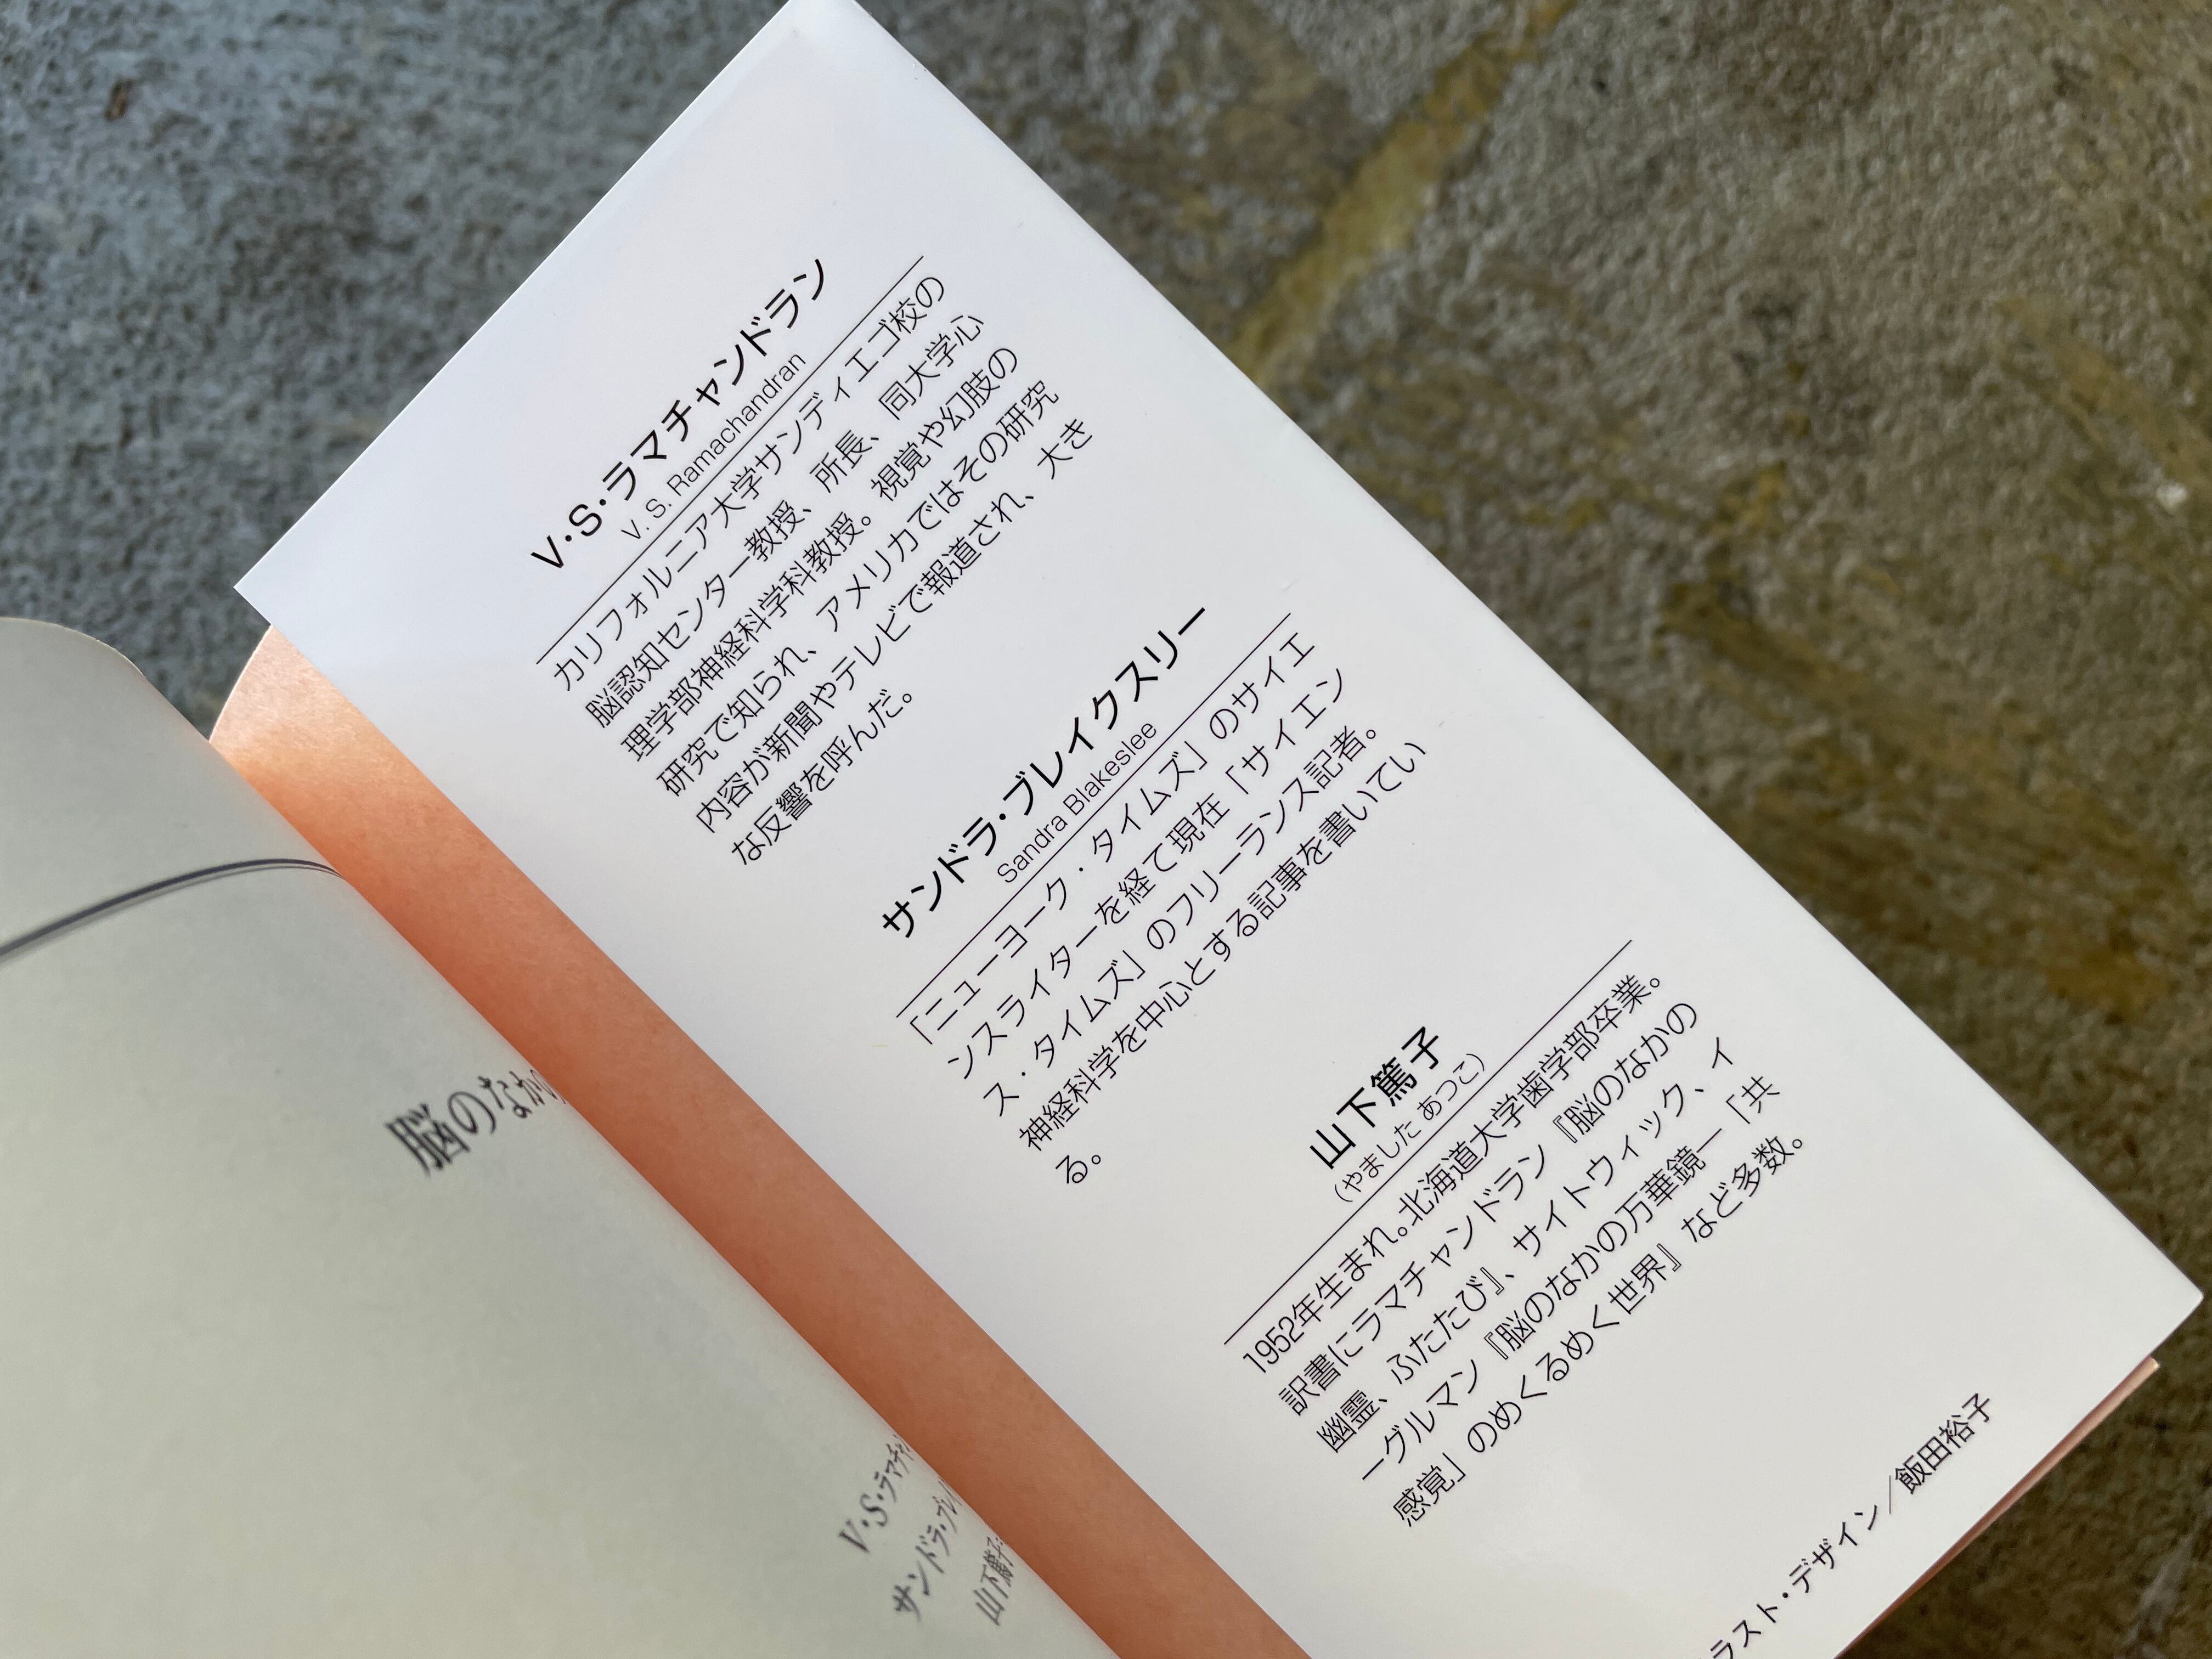 V・S・ラマチャンドラン
V. S. Ramachandran
カリフォルニア大学サンディエゴ校の
脳認知センター教授、所長、同大学心
理学部神経科学科教授。視覚や幻肢の
研究で知られ、アメリカではその研究
内容が新聞やテレビで報道され、大き
な反響を呼んだ。
サンドラ・ブレイクスリー
Sandra Blakeslee
「ニューヨーク・タイムズ」のサイエ
ンスライターを経て現在「サイエン
ス・タイムズ」のフリーランス記者。
神経科学を中心とする記事を書いてい
る。
山下篤子
(やました あつこ)
1952年生まれ。北海道大学歯学部卒業。
訳書にラマチャンドラン『脳のなかの
幽霊、ふたたび』、サイトウィック、イ
ーグルマン『脳のなかの万華鏡―「共
感覚」のめくるめく世界』など多数。
ラスト・デザイン/飯田裕子
脳のなかの
V・S・ラマチャ
サンドラ・ブレイ
山下篤子